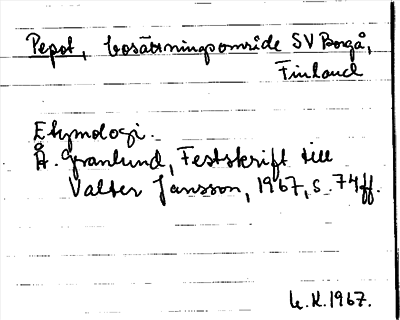 Pepot, bosättningsområde SV Borgå,
Finland
Etymologi.
Å. Granlund, Festskrift till
Valter Jansson, 1967, s. 74ff.
1967.